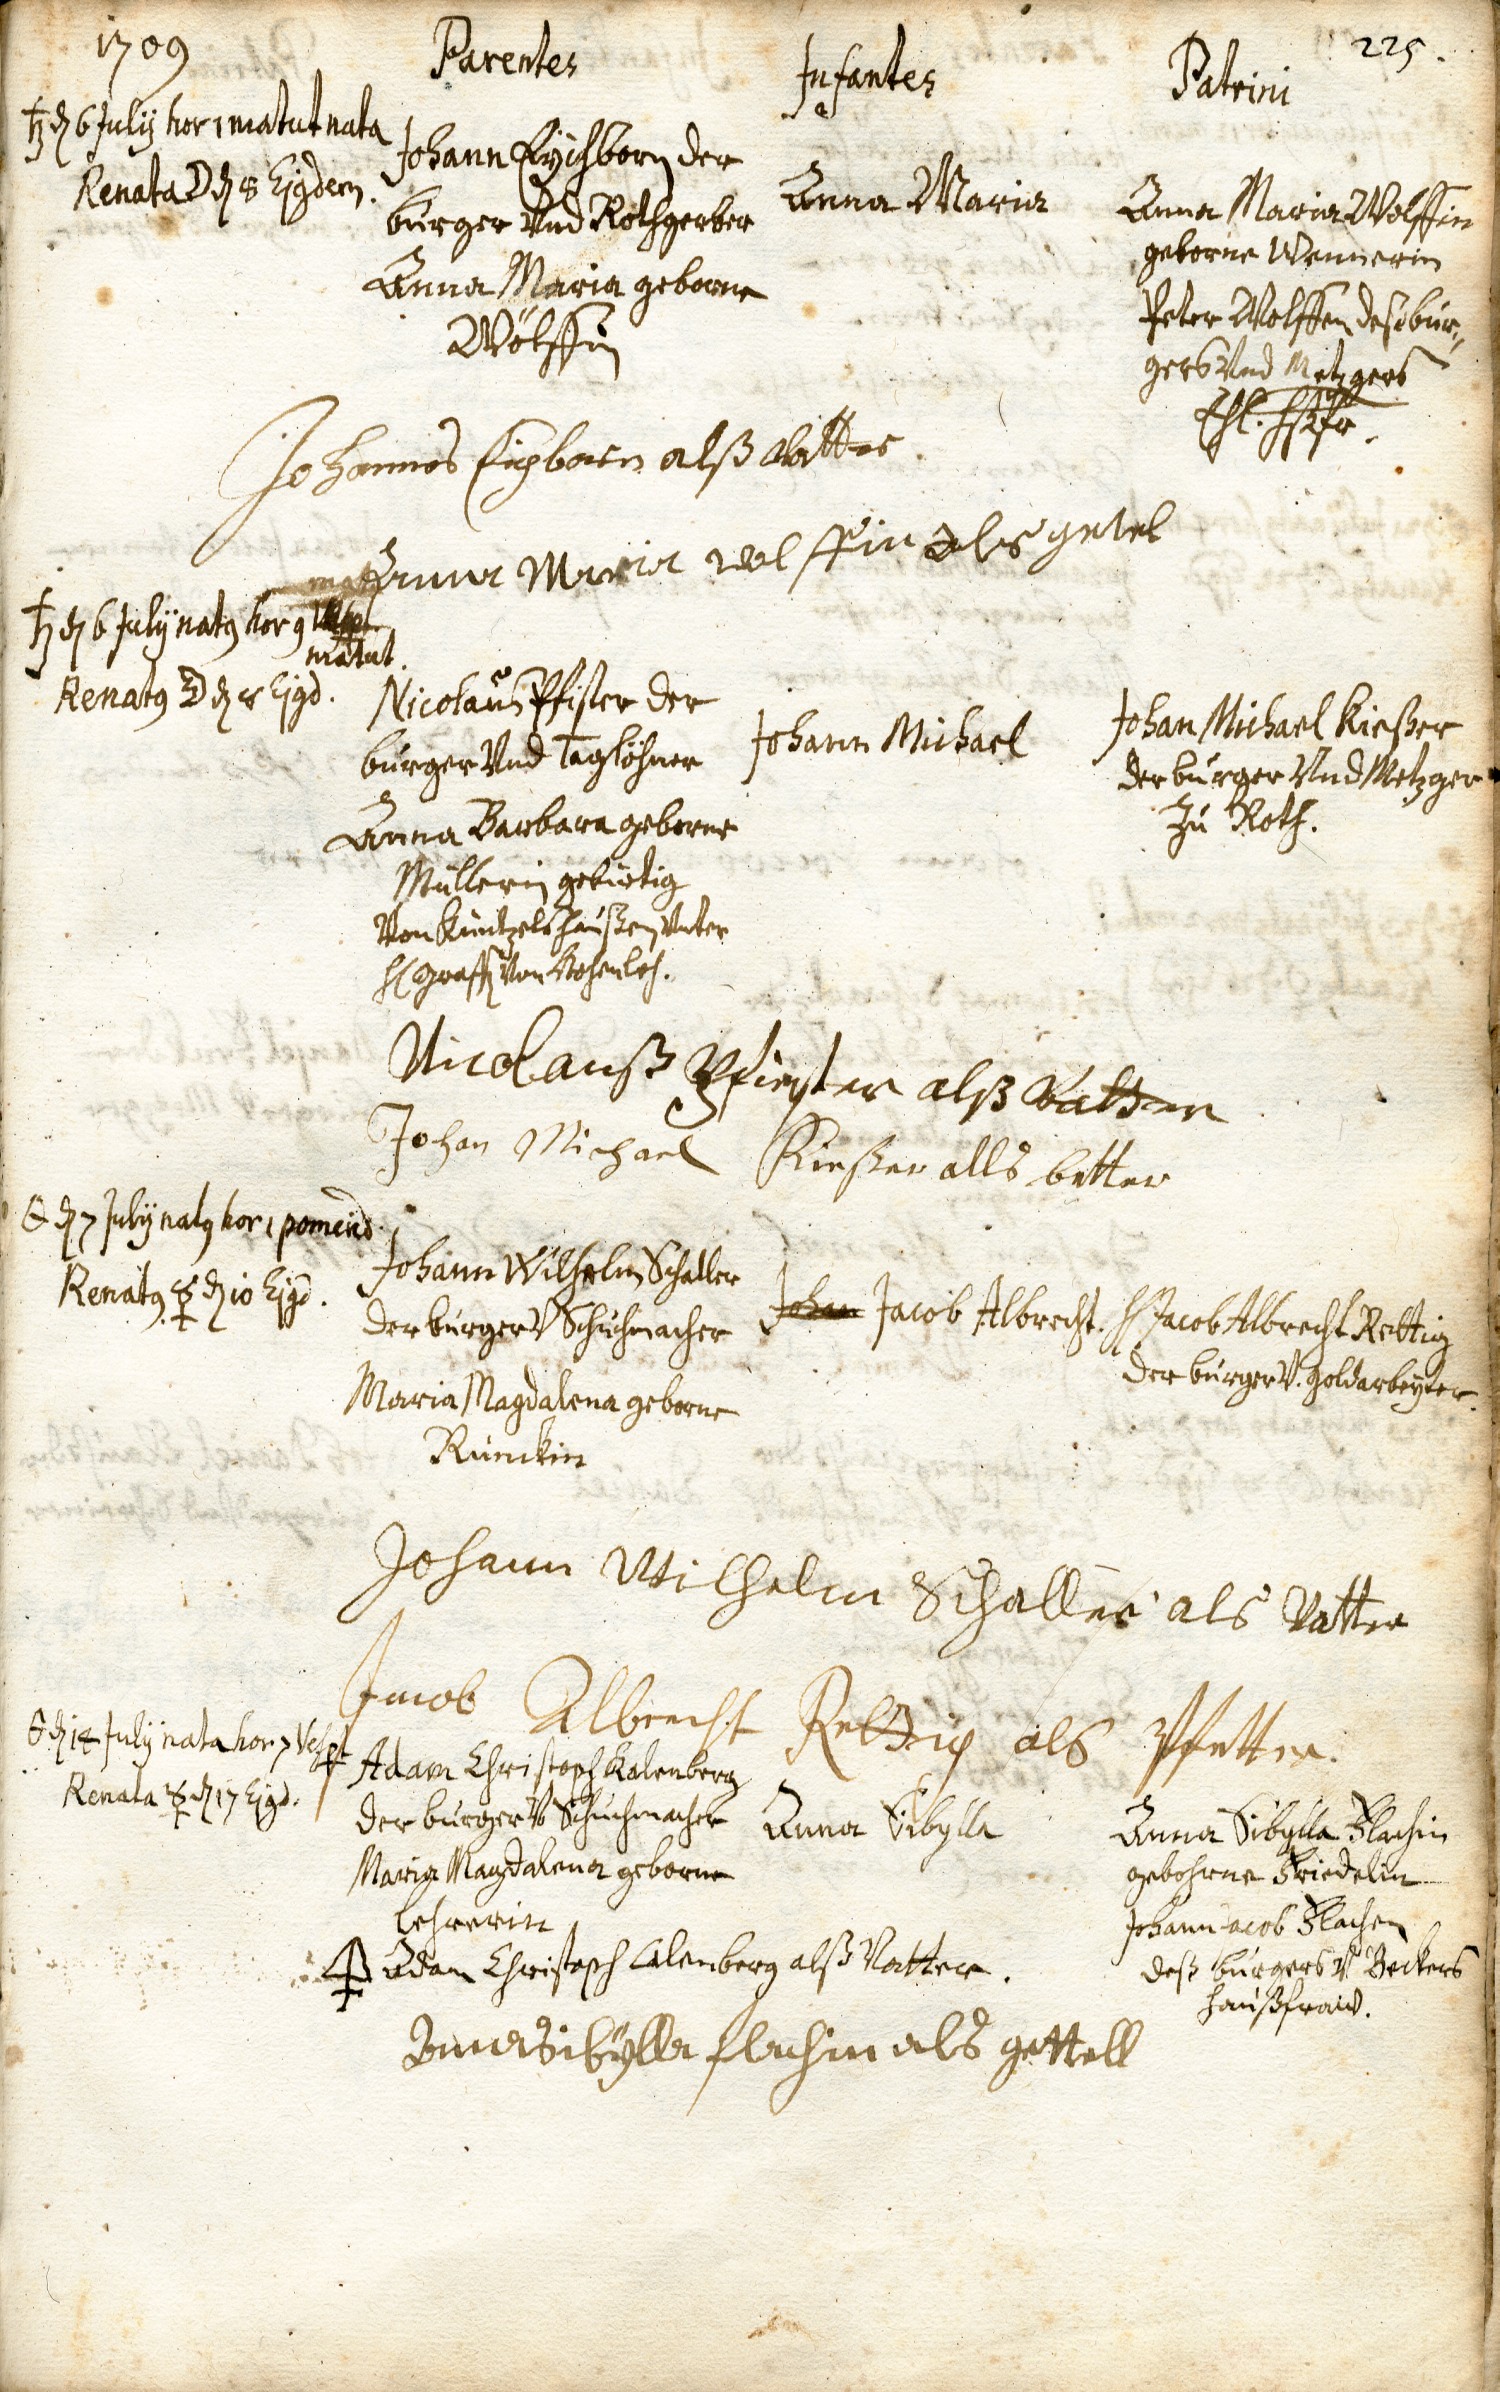 1709
Parentes
Infantes
Patrini
225.
♄ d 6 July hor 1 matut nata
Renata ☽ d 8 Ejgdem.
Johann Eychborn der
burger Vnd Rothgerber
Anna Maria geborne
Wölffin
Anna Maria
Anna Maria Wolffin
geborne Wennerin
Peter Wolffen deß bur-
gers Vnd Metzgers
Ehl. Hßfr.
Johannes Eichborn alß Vatter
Anna Maria wolffin als getel
♄ d 6 July natg hor 9
matut.
Renatg ☽ d 8 Ejgd.
Nicolaus Pfister der
burger Vnd Taglöhner
Anna Barbara geborne
Müllerin gebürtig
Von Küntzelshaußen Vnter
H Graff Von Hohenloh.
Johann Michael
Johan Michael Kießer
der burger Vnd Metzger
Zu Roth.
Nicolauß Pfiester alß Vatter
Johan Michael Kießer alls better
☉ d 7 July natg hor 1 pomerid
Renatg ☿ d 10 Ejgd.
Johann Wilhelm Schaller
der burger V Schuhmacher
Maria Magdalena geborne
Runckin
Johan Jacob Albrecht.
H Jacob Albrecht Rettig
der burger V. goldarbeyter.
Johann Wilhelm Schaller als Vatter
Jacob Albrecht Rettig als Pfetter.
☉ d 14 July nata hor 7 Vesp
Renata ☿ d 17 Ejgd.
Adam Christoph Kalenberg
der burger V Schuchmacher
Maria Magdalena geborne
Lehrerin
Anna Sibylla
Anna Sibylla Flachin
gebohrne Friedelin
Johann Jacob Flachen
deß burgers V Beckers
haußfraw.
Adam Christoph Calenberg alß Vatter.
Anna Sibÿlla flachin als gettell